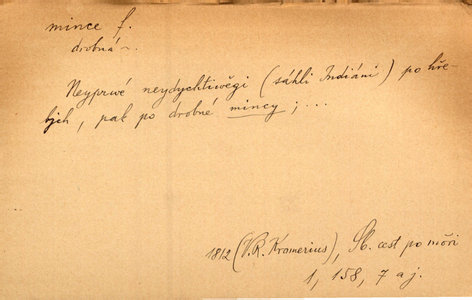 mince f.
drobná ~.
Neyprwé neydychtiwěgi (sáhli Indiáni) po hře-
bjch, pak po drobné mincy; ...
1812 (V.R. Kramerius), Sb. cest po moři
1, 158, 7 a j.